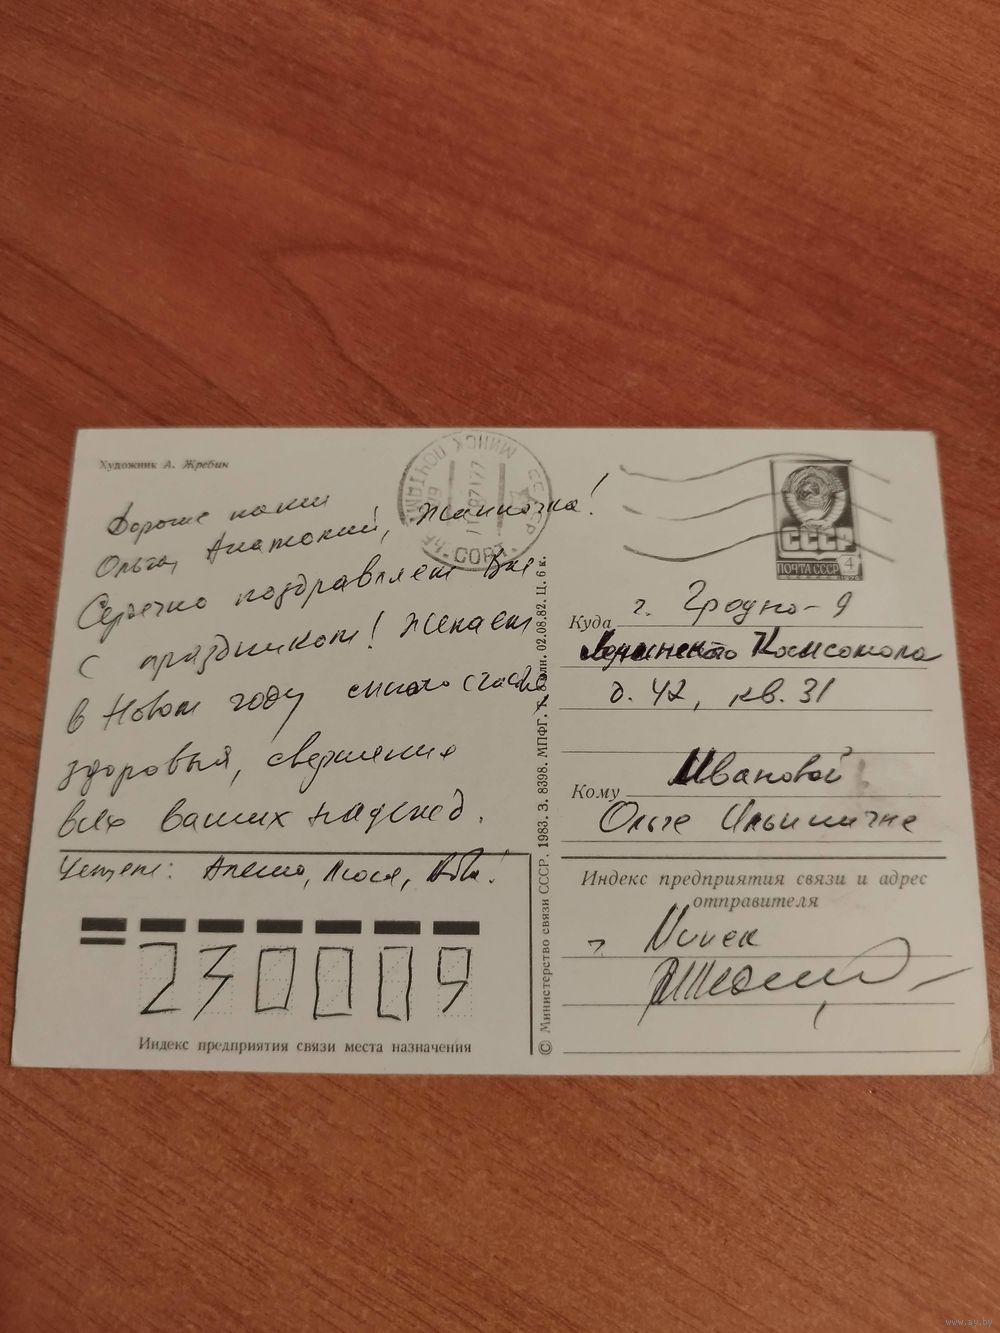 Художник А. Жребин
Дорогие наши
Ольга, Анатолий, Жанночка!
Сердечно поздравляем Вас
с праздником! Желаем
в Новом году много счастья,
здоровья, свершение
всех ваших надежд.
Целуем:
МИНСК ПОЧТАМТ
СССР
СОРТ
ПОЧТА СССР
4
1976
Куда г. Гродно-9
Ленинского Комсомола
д. 42, кв. 31
Кому Ивановой
Ольге Ильиничне
Индекс предприятия связи и адрес
отправителя
г. Минск
230009
Индекс предприятия связи места назначения
© Министерство связи СССР. 1983. З. 8398. МПФГ. 02.08.82. Ц. 6 к.
www.ay.by